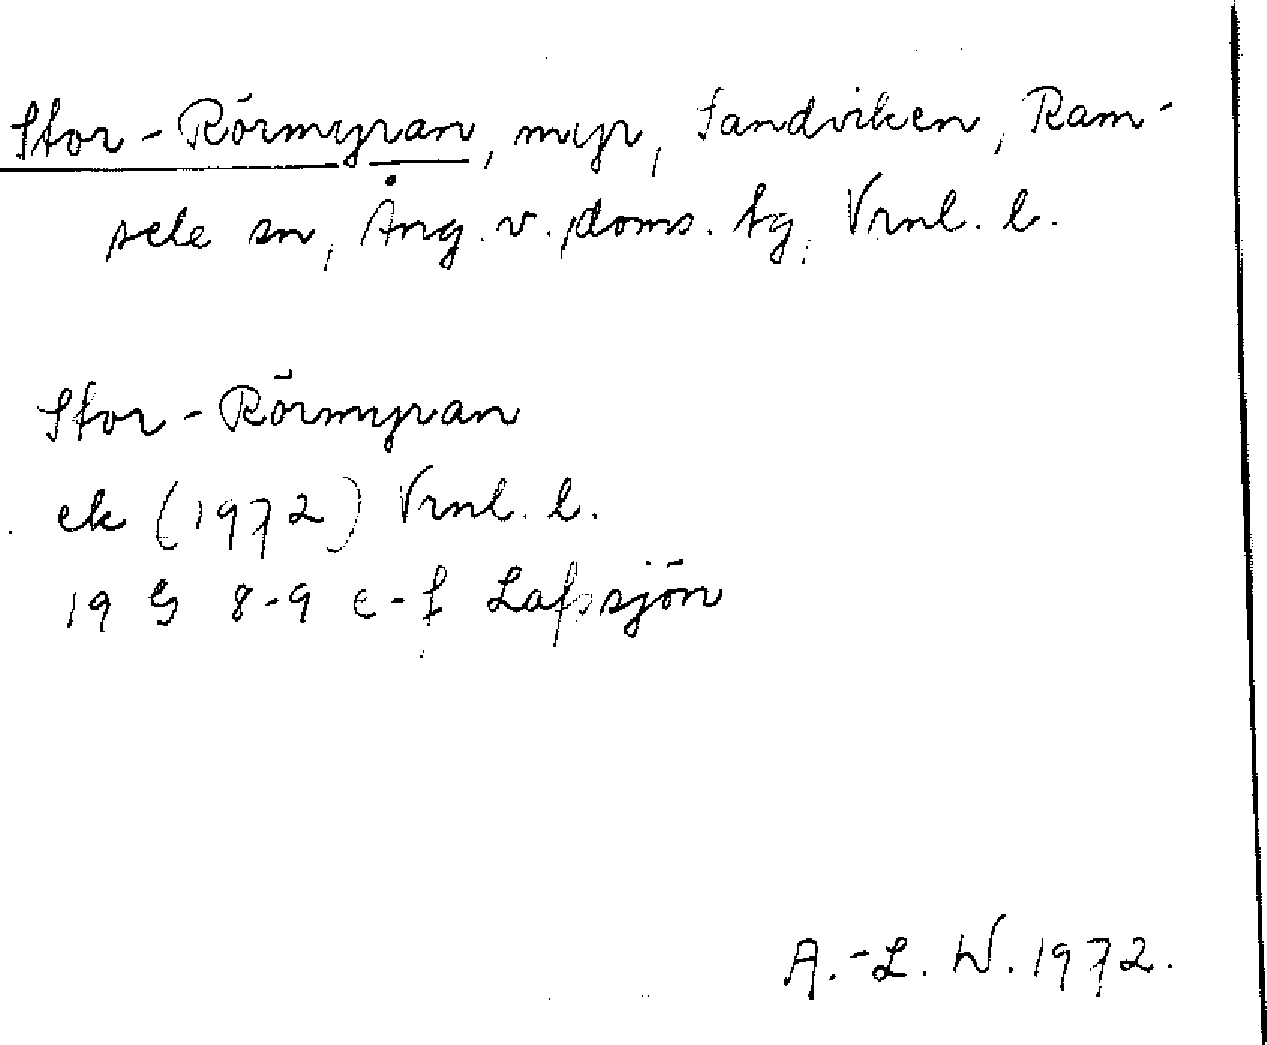 Stor-Rörmyran, myr, Sandviken, Ram-
sele sn, Ång. v. doms. tg, Vrnl. l.
Stor-Rörmyran
ek (1972) Vrnl. l.
19 G 8-9 e-f Lafssjön
A.-L. W. 1972.